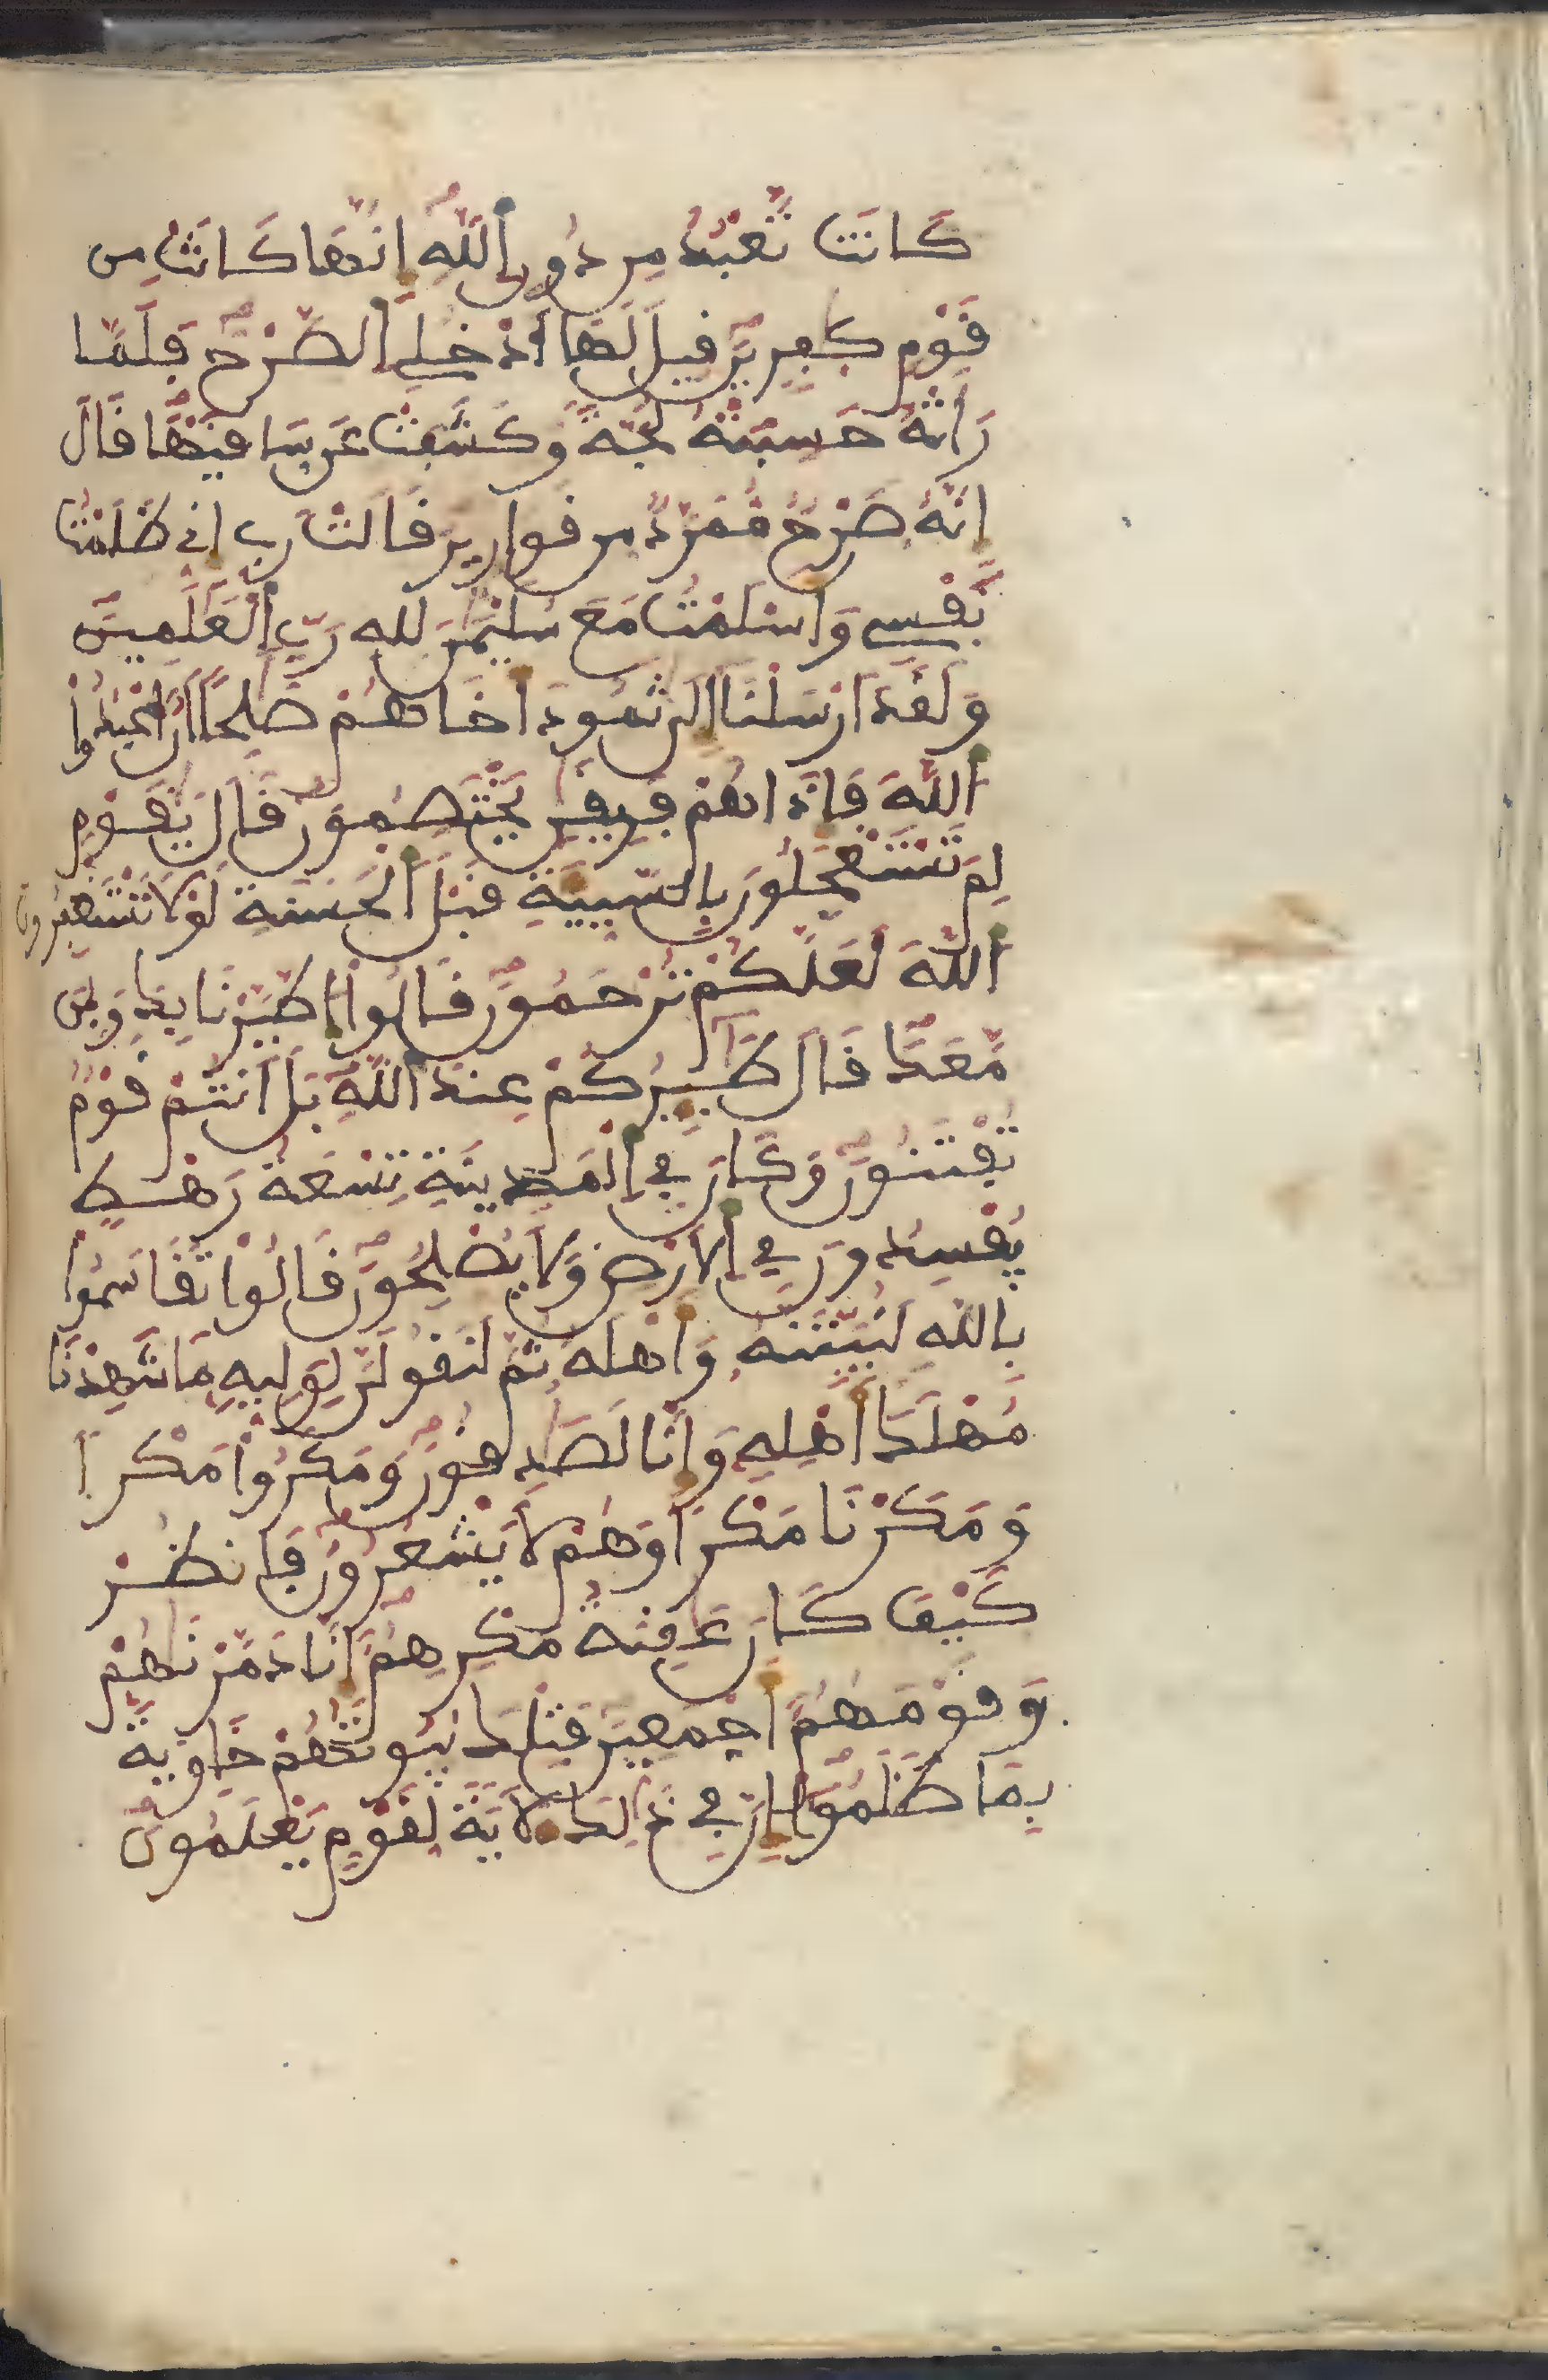 كَانَت تَّعْبُدُ مِن دُونِ اللَّهِ إِنَّهَا كَانَتْ مِن
قَوْمٍ كَٰفِرِينَ قِيلَ لَهَا ادْخُلِي الصَّرْحَ فَلَمَّا
رَأَتْهُ حَسِبَتْهُ لُجَّةً وَكَشَفَتْ عَن سَاقَيْهَا قَالَ
إِنَّهُ صَرْحٌ مُّمَرَّدٌ مِّن قَوَارِيرَ قَالَتْ رَبِّ إِنِّي ظَلَمْتُ
نَفْسِي وَأَسْلَمْتُ مَعَ سُلَيْمَٰنَ لِلَّهِ رَبِّ الْعَٰلَمِينَ
وَلَقَدْ أَرْسَلْنَا إِلَىٰ ثَمُودَ أَخَاهُمْ صَٰلِحًا أَنُ اعْبُدُوا
اللَّهَ فَإِذَا هُمْ فَرِيقَٰنِ يَخْتَصِمُونَ قَالَ يَٰقَوْمِ
لِمَ تَسْتَعْجِلُونَ بِالسَّيِّئَةِ قَبْلَ الْحَسَنَةِ لَوْلَا تَسْتَغْفِرُونَ
اللَّهَ لَعَلَّكُمْ تُرْحَمُونَ قَالُوا اطَّيَّرْنَا بِكَ وَبِمَن
مَّعَكَ قَالَ طَٰئِرُكُمْ عِندَ اللَّهِ بَلْ أَنتُمْ قَوْمٌ
تُفْتَنُونَ وَكَانَ فِي الْمَدِينَةِ تِسْعَةُ رَهْطٍ
يُفْسِدُونَ فِي الْأَرْضِ وَلَا يُصْلِحُونَ قَالُوا تَقَاسَمُوا
بِاللَّهِ لَنُبَيِّتَنَّهُ وَأَهْلَهُ ثُمَّ لَنَقُولَنَّ لِوَلِيِّهِ مَا شَهِدْنَا
مُهْلَكَ أَهْلِهِ وَإِنَّا لَصَٰدِقُونَ وَمَكَرُوا مَكْرًا
وَمَكَرْنَا مَكْرًا وَهُمْ لَا يَشْعُرُونَ فَانظُرْ
كَيْفَ كَانَ عَٰقِبَةُ مَكْرِهِمْ إِنَّا دَمَّرْنَٰهُمْ
وَقَوْمَهُمْ أَجْمَعِينَ فَتِلْكَ بُيُوتُهُمْ خَاوِيَةً
بِمَا ظَلَمُوا إِنَّ فِي ذَٰلِكَ لَآيَةً لِّقَوْمٍ يَعْلَمُونَ